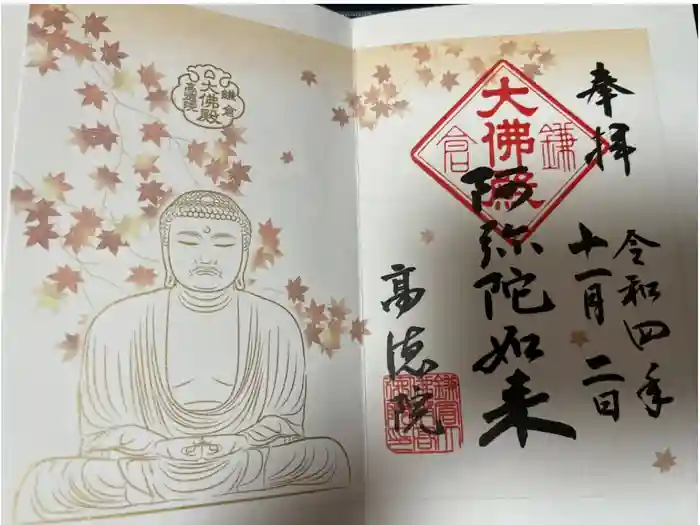 奉拝
令和四年
十一月二日
大佛殿
鎌倉
阿弥陀如来
高徳院
鎌倉
大佛殿
高徳院